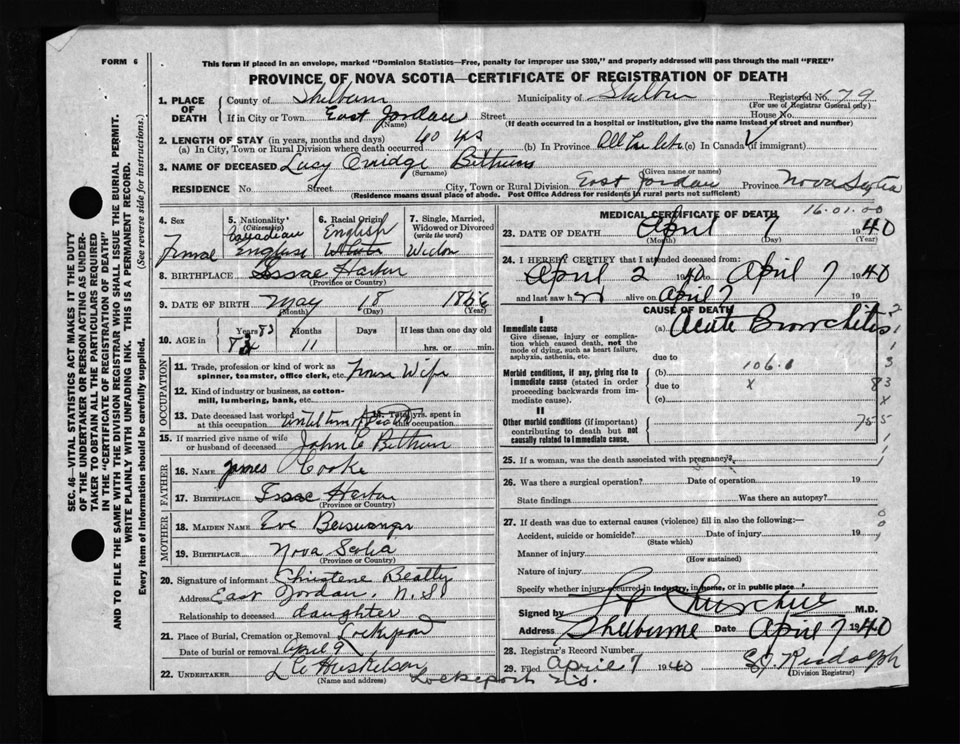 FORM 6
This form if placed in an envelope, marked "Dominion Statistics—Free, penalty for improper use $300," and properly addressed will pass through the mail "FREE"
PROVINCE OF NOVA SCOTIA—CERTIFICATE OF REGISTRATION OF DEATH
SEC. 46—VITAL STATISTICS ACT MAKES IT THE DUTY
OF THE UNDERTAKER OR PERSON ACTING AS UNDER-
TAKER TO OBTAIN ALL THE PARTICULARS REQUIRED
IN THE "CERTIFICATE OF REGISTRATION OF DEATH"
AND TO FILE THE SAME WITH THE DIVISION REGISTRAR WHO SHALL ISSUE THE BURIAL PERMIT.
WRITE PLAINLY WITH UNFADING INK. THIS IS A PERMANENT RECORD.
Every item of Information should be carefully supplied. (See reverse side for instructions.)
1. PLACE OF DEATH County of Municipality of Registered No. 679
(For use of Registrar General only)
If in City or Town East Jordan Street House No.
(Name) (If death occurred in a hospital or institution, give the name instead of street and number)
2. LENGTH OF STAY (in years, months and days)
(a) In City, Town or Rural Division where death occurred 40 yrs (b) In Province All her life (c) In Canada (if immigrant)
3. NAME OF DECEASED Lucy
(Surname) (Given name or names)
RESIDENCE No. Street City, Town or Rural Division East Jordan Province Nova Scotia
(Residence means usual place of abode. Post Office Address for residents in rural parts not sufficient)
4. Sex
5. Nationality (Citizenship) Canadian
6. Racial Origin English
7. Single, Married, Widowed or Divorced (write the word)
8. BIRTHPLACE
(Province or County)
9. DATE OF BIRTH May 18 1856
(Month) (Day) (Year)
10. AGE in Years 83 Months 11 Days If less than one day old
hrs. or min.
OCCUPATION
11. Trade, profession or kind of work as
spinner, teamster, office clerk, etc. House Wife
12. Kind of industry or business, as cotton-
mill, lumbering, bank, etc.
13. Date deceased last worked at this occupation
14. Total yrs. spent in this occupation
15. If married give name of wife
or husband of deceased John
FATHER
16. NAME James Cooke
17. BIRTHPLACE
(Province or County)
MOTHER
18. MAIDEN NAME
19. BIRTHPLACE Nova Scotia
(Province or County)
20. Signature of informant Christene Beatty
Address East Jordan, N.S.
Relationship to deceased daughter
21. Place of Burial, Cremation or Removal
Date of burial or removal April 9
22. UNDERTAKER
(Name and address) Lockeport N.S.
MEDICAL CERTIFICATE OF DEATH
16.01.00
23. DATE OF DEATH April 7 1940
(Month) (Day) (Year)
24. I HEREBY CERTIFY that I attended deceased from:
April 2 1940 to April 7 1940
and last saw her alive on April 7 19
CAUSE OF DEATH
I
Immediate cause
Give disease, injury or complica-
tion which caused death, not the
mode of dying, such as heart failure,
asphyxia, asthenia, etc.
(a) Acute Bronchitis
due to
Morbid conditions, if any, giving rise to
immediate cause (stated in order
proceeding backwards from
immediate cause).
(b)
due to
(c)
II
Other morbid conditions (if important)
contributing to death but not
causally related to immediate cause.
25. If a woman, was the death associated with pregnancy?
26. Was there a surgical operation? Date of operation 19
State findings Was there an autopsy?
27. If death was due to external causes (violence) fill in also the following:—
Accident, suicide or homicide? Date of injury 19
(State which)
Manner of injury
(How sustained)
Nature of injury
Specify whether injury occurred in industry, in home, or in public place
Signed by Churchill M.D.
Address Shelburne Date April 7 1940
28. Registrar's Record Number
29. Filed April 7 1940 Rudolph
(Division Registrar)